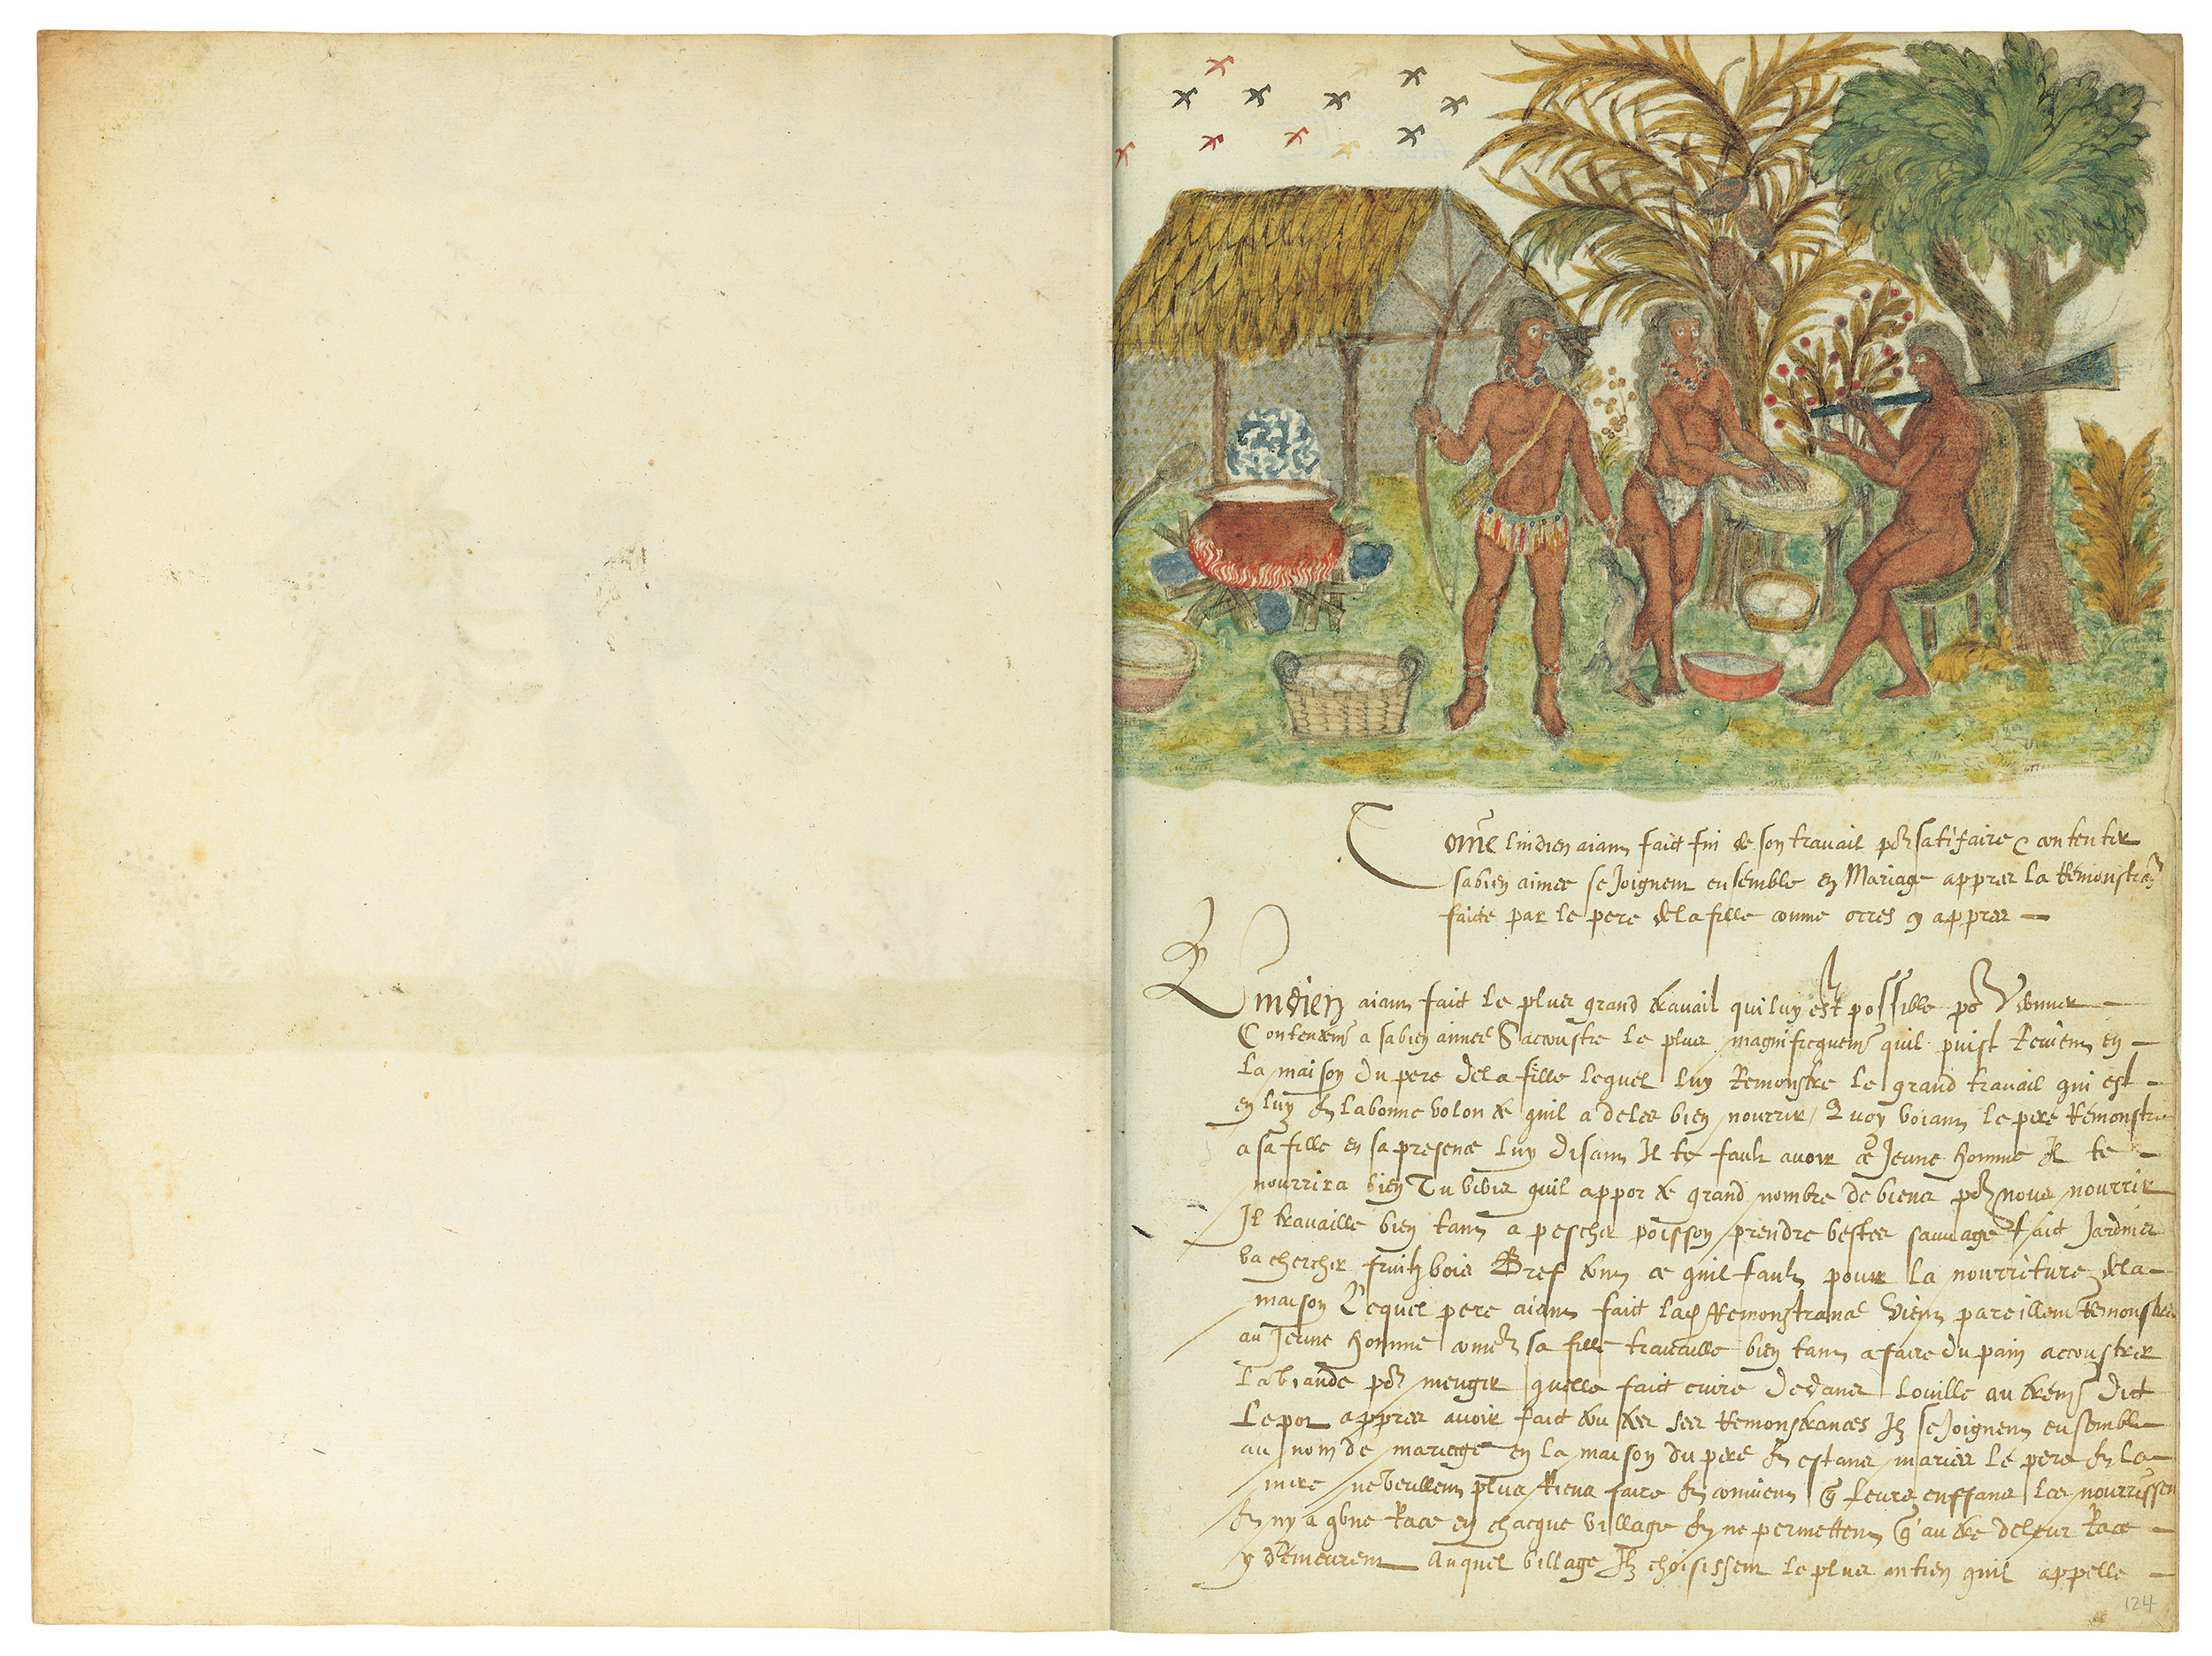 Come lindien aiant fait fin de son travail por satifaire & contenter
sa bien aimee se Joignent ensemble en Mariage appres la Remonstrance
faicte par le pere de la fille comme orres cy appres
Lindien aiant faict le plus grand travail qui luy est possible por donner
Contentemt a sa bien aimee S'accoustre le plus magnificquemt quil puist Revient en
La maison du pere de la fille lequel luy Remonstre le grand travail qui est
en luy & la bonne volonte quil a de les bien nourrir / Quoy voiant le pere Remonstre
a sa fille en sa presence luy disant Il te fault avoir ce Jeune homme Il te
nourrira bien Tu vois quil apporte grand nombre de biens por nous nourrir
Il travaille bien tant a pescher poisson prendre bestes sauvages fait Jardins
va chercher fruitz bois Bref tout ce quil fault pour la nourriture de la
maison Lequel pere aiant faict lad Remonstrance vient pareillemt Remonstrer
au Jeune homme comet sa fille travaille bien tant a faire du pain accoustrer
La viande por menger quelle fait cuire dedans Louille autremt dict
Le pot appres avoir fait toutes ses Remonstrances Ilz se Joignent ensemble
au nom de mariage en la maison du pere & estans maries le pere & la
mere ne veullent plus Riens faire & convient q leurs enffans les nourrissent
& ny a qune Race en chacque village & ne permettent q autre de leur Race
y demeurent Auquel village Ilz choisissent le plus antien quil appelle
124